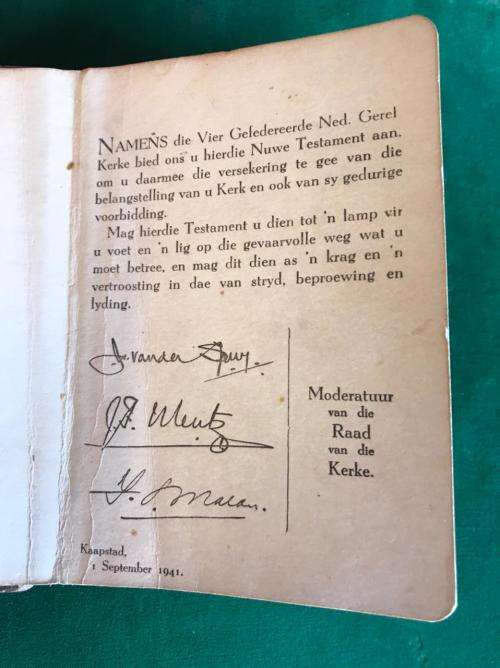 NAMENS die Vier Gefedereerde Ned. Geref
Kerke bied ons u hierdie Nuwe Testament aan,
om u daarmee die versekering te gee van die
belangstelling van u Kerk en ook van sy gedurige
voorbidding.
Mag hierdie Testament u dien tot 'n lamp vir
u voet en 'n lig op die gevaarvolle weg wat u
moet betree, en mag dit dien as 'n krag en 'n
vertroosting in dae van stryd, beproewing en
lyding.
van der Spuy.
Mentz
Malan.
Moderatuur
van die
Raad
van die
Kerke.
Kaapstad,
1 September 1941.